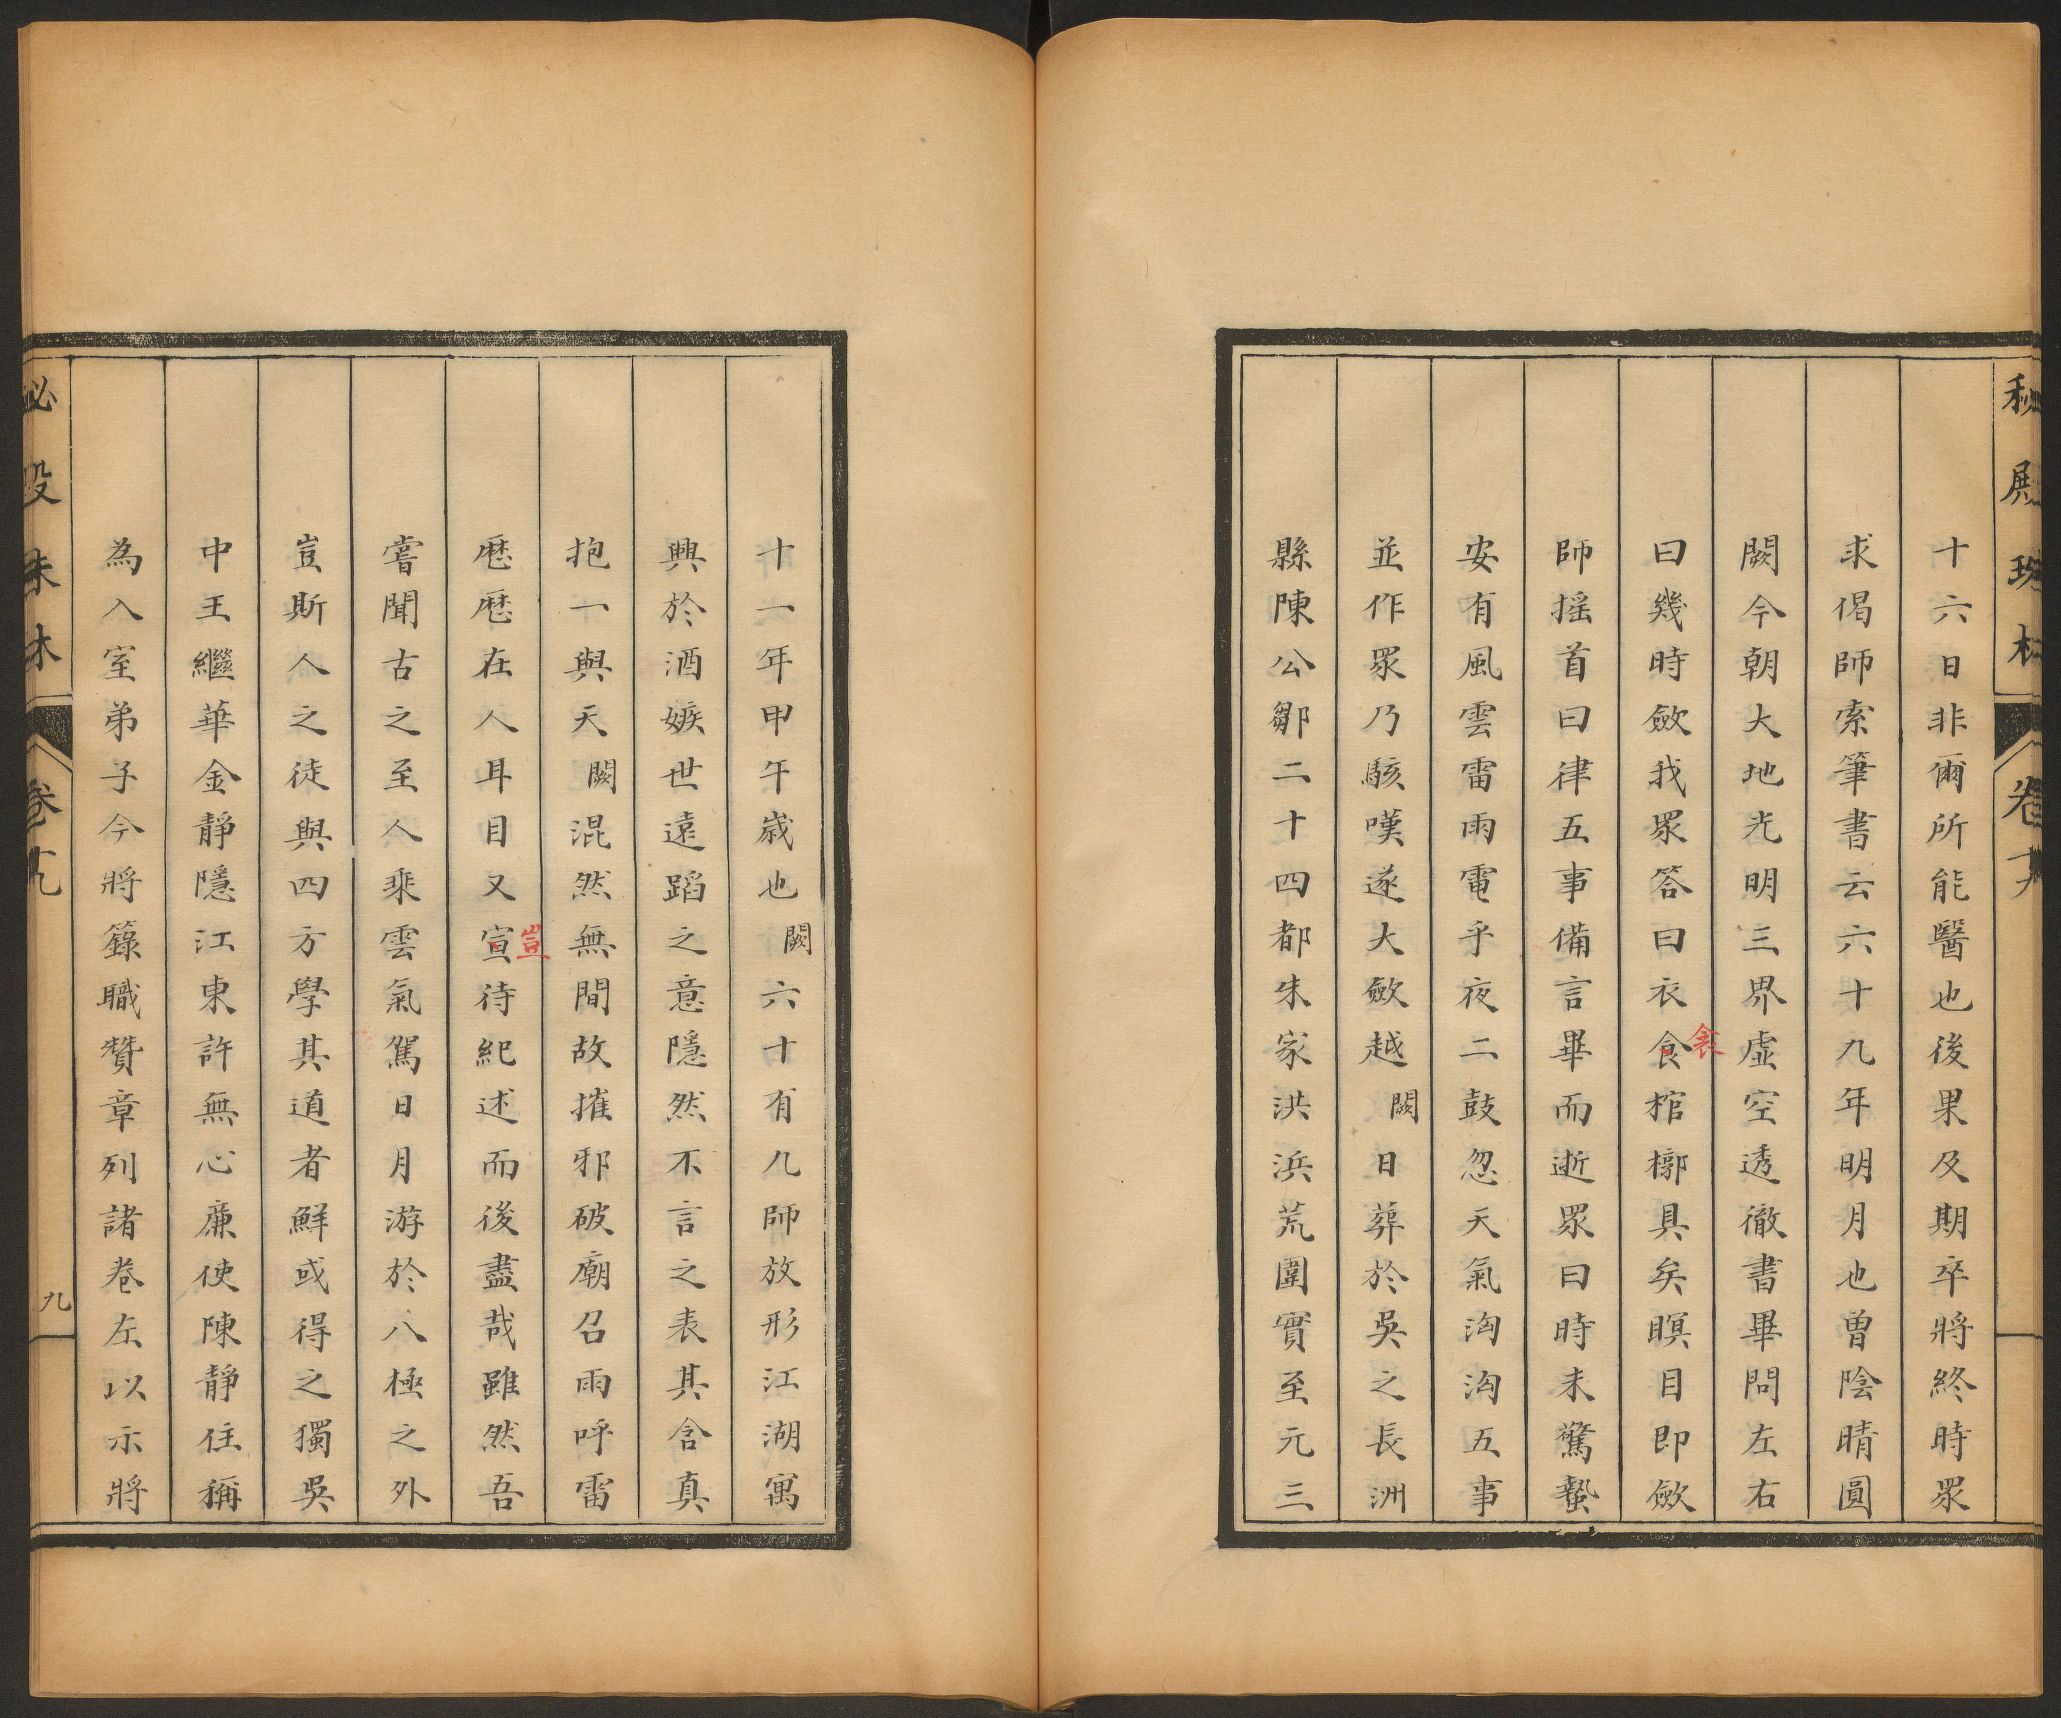 十六日非爾所能醫也後果及期卒將終時眾
求偈師索筆書云六十九年明月也曽陰晴圓
闕今朝大地光明三界虛空透徹書畢問左右
曰幾時斂我眾答曰衣食棺槨具矣瞑目即斂
衾
師摇首曰律五事備言畢而逝眾曰時未驚蟄
安有風雲雷雨電乎夜二鼓忽天氣洶洶五事
並作眾乃駭嘆遂大斂越闕日葬於吳之長洲
縣陳公鄒二十四都朱家洪浜荒圍實至元三
十一年甲午歲也闕六十有九師放形江湖寓
興於酒嫉世遠蹈之意隱然不言之表其含真
抱一與天闕混然無間故摧邪破廟召雨呼雷
歷歷在人耳目又宣待紀述而後盡哉雖然吾
豈
嘗聞古之至人乘雲氣駕日月游於八極之外
豈斯人之徒與四方學其道者鮮或得之獨吳
中王繼華金靜隱江東許無心廉使陳靜住稱
為入室弟子今將籙職贊章列諸卷左以示將
秘殿珠林
卷十九
九